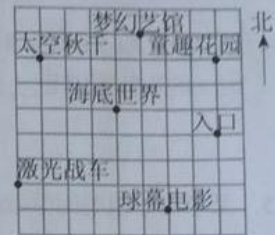 梦幻艺馆
北
太空秋千
童趣花园
海底世界
入口
激光战车
球幕电影